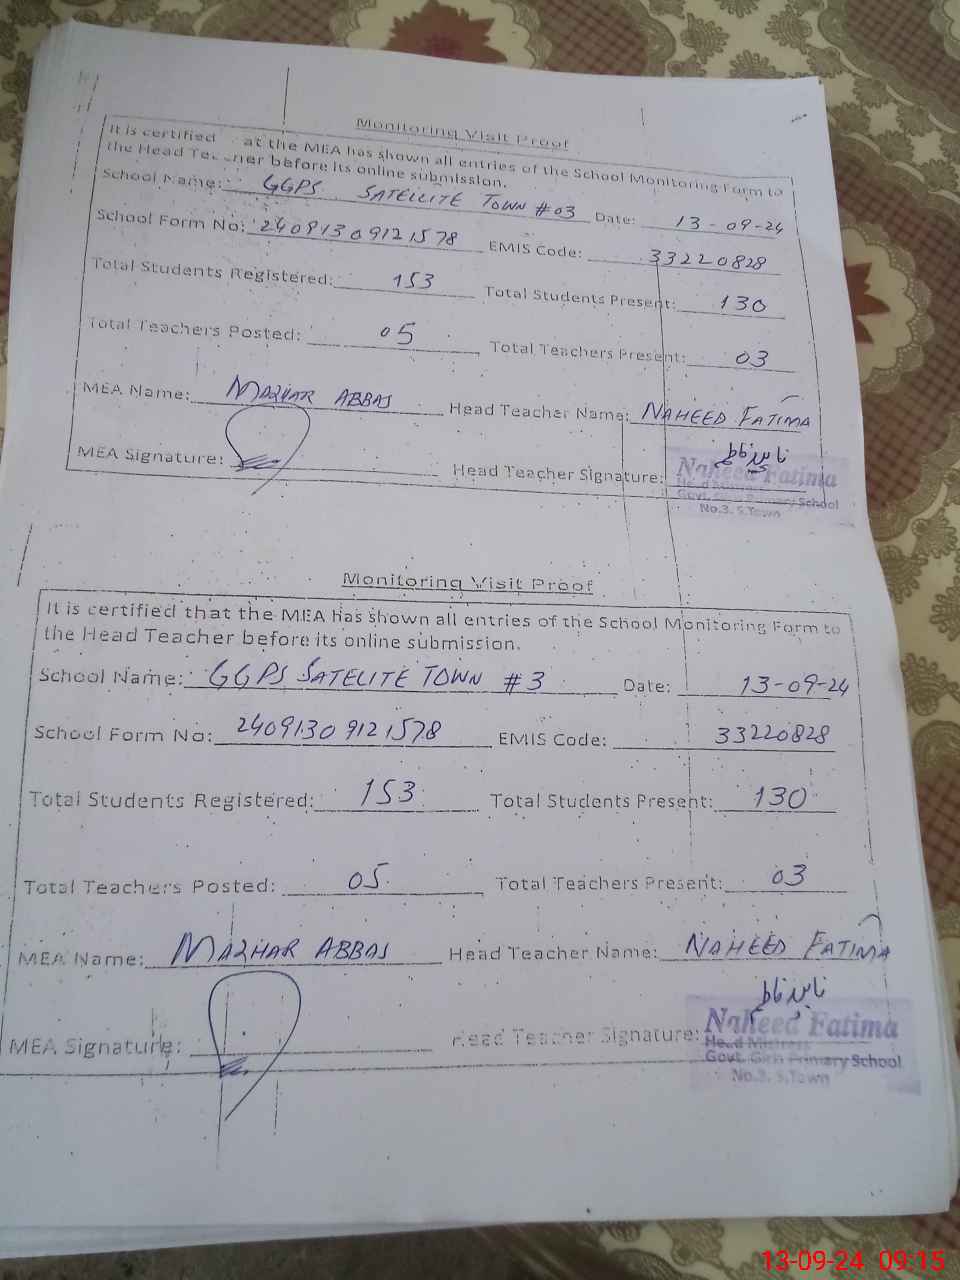 Monitoring Visit Proof
It is certified at the MEA has shown all entries of the School Monitoring Form to
the Head before its online submission.
School Name: GGPS SATELLITE TOWN #03 Date: 13-09-24
School Form No: 24091309121578 EMIS Code: 33220828
Total Students Registered: 153 Total Students Present: 130
Total Teachers Posted: 05 Total Teachers Present: 03
MEA Name: MAZHAR ABBAS Head Teacher Name: NAHEED FATIMA
MEA Signature: Head Teacher Signature:
ناہید فاطمہ
Naheed Fatima
Govt. Girls Primary School
No.3, S.Town
Monitoring Visit Proof
It is certified that the MEA has shown all entries of the School Monitoring Form to
the Head Teacher before its online submission.
School Name: GGPS SATELITE TOWN #3 Date: 13-09-24
School Form No: 24091309121578 EMIS Code: 33220828
Total Students Registered: 153 Total Students Present: 130
Total Teachers Posted: 05 Total Teachers Present: 03
MEA Name: MAZHAR ABBAS Head Teacher Name: NAHEED FATIMA
MEA Signature: Head Teacher Signature:
ناہید فاطمہ
Naheed Fatima
Head Mistress
Govt. Girls Primary School
No.3, S.Town
13-09-24 09:15